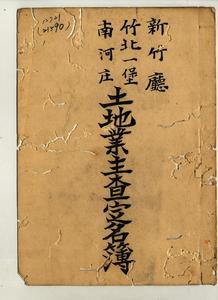 新竹廳
竹北一堡
南河庄
土地業主查定名簿